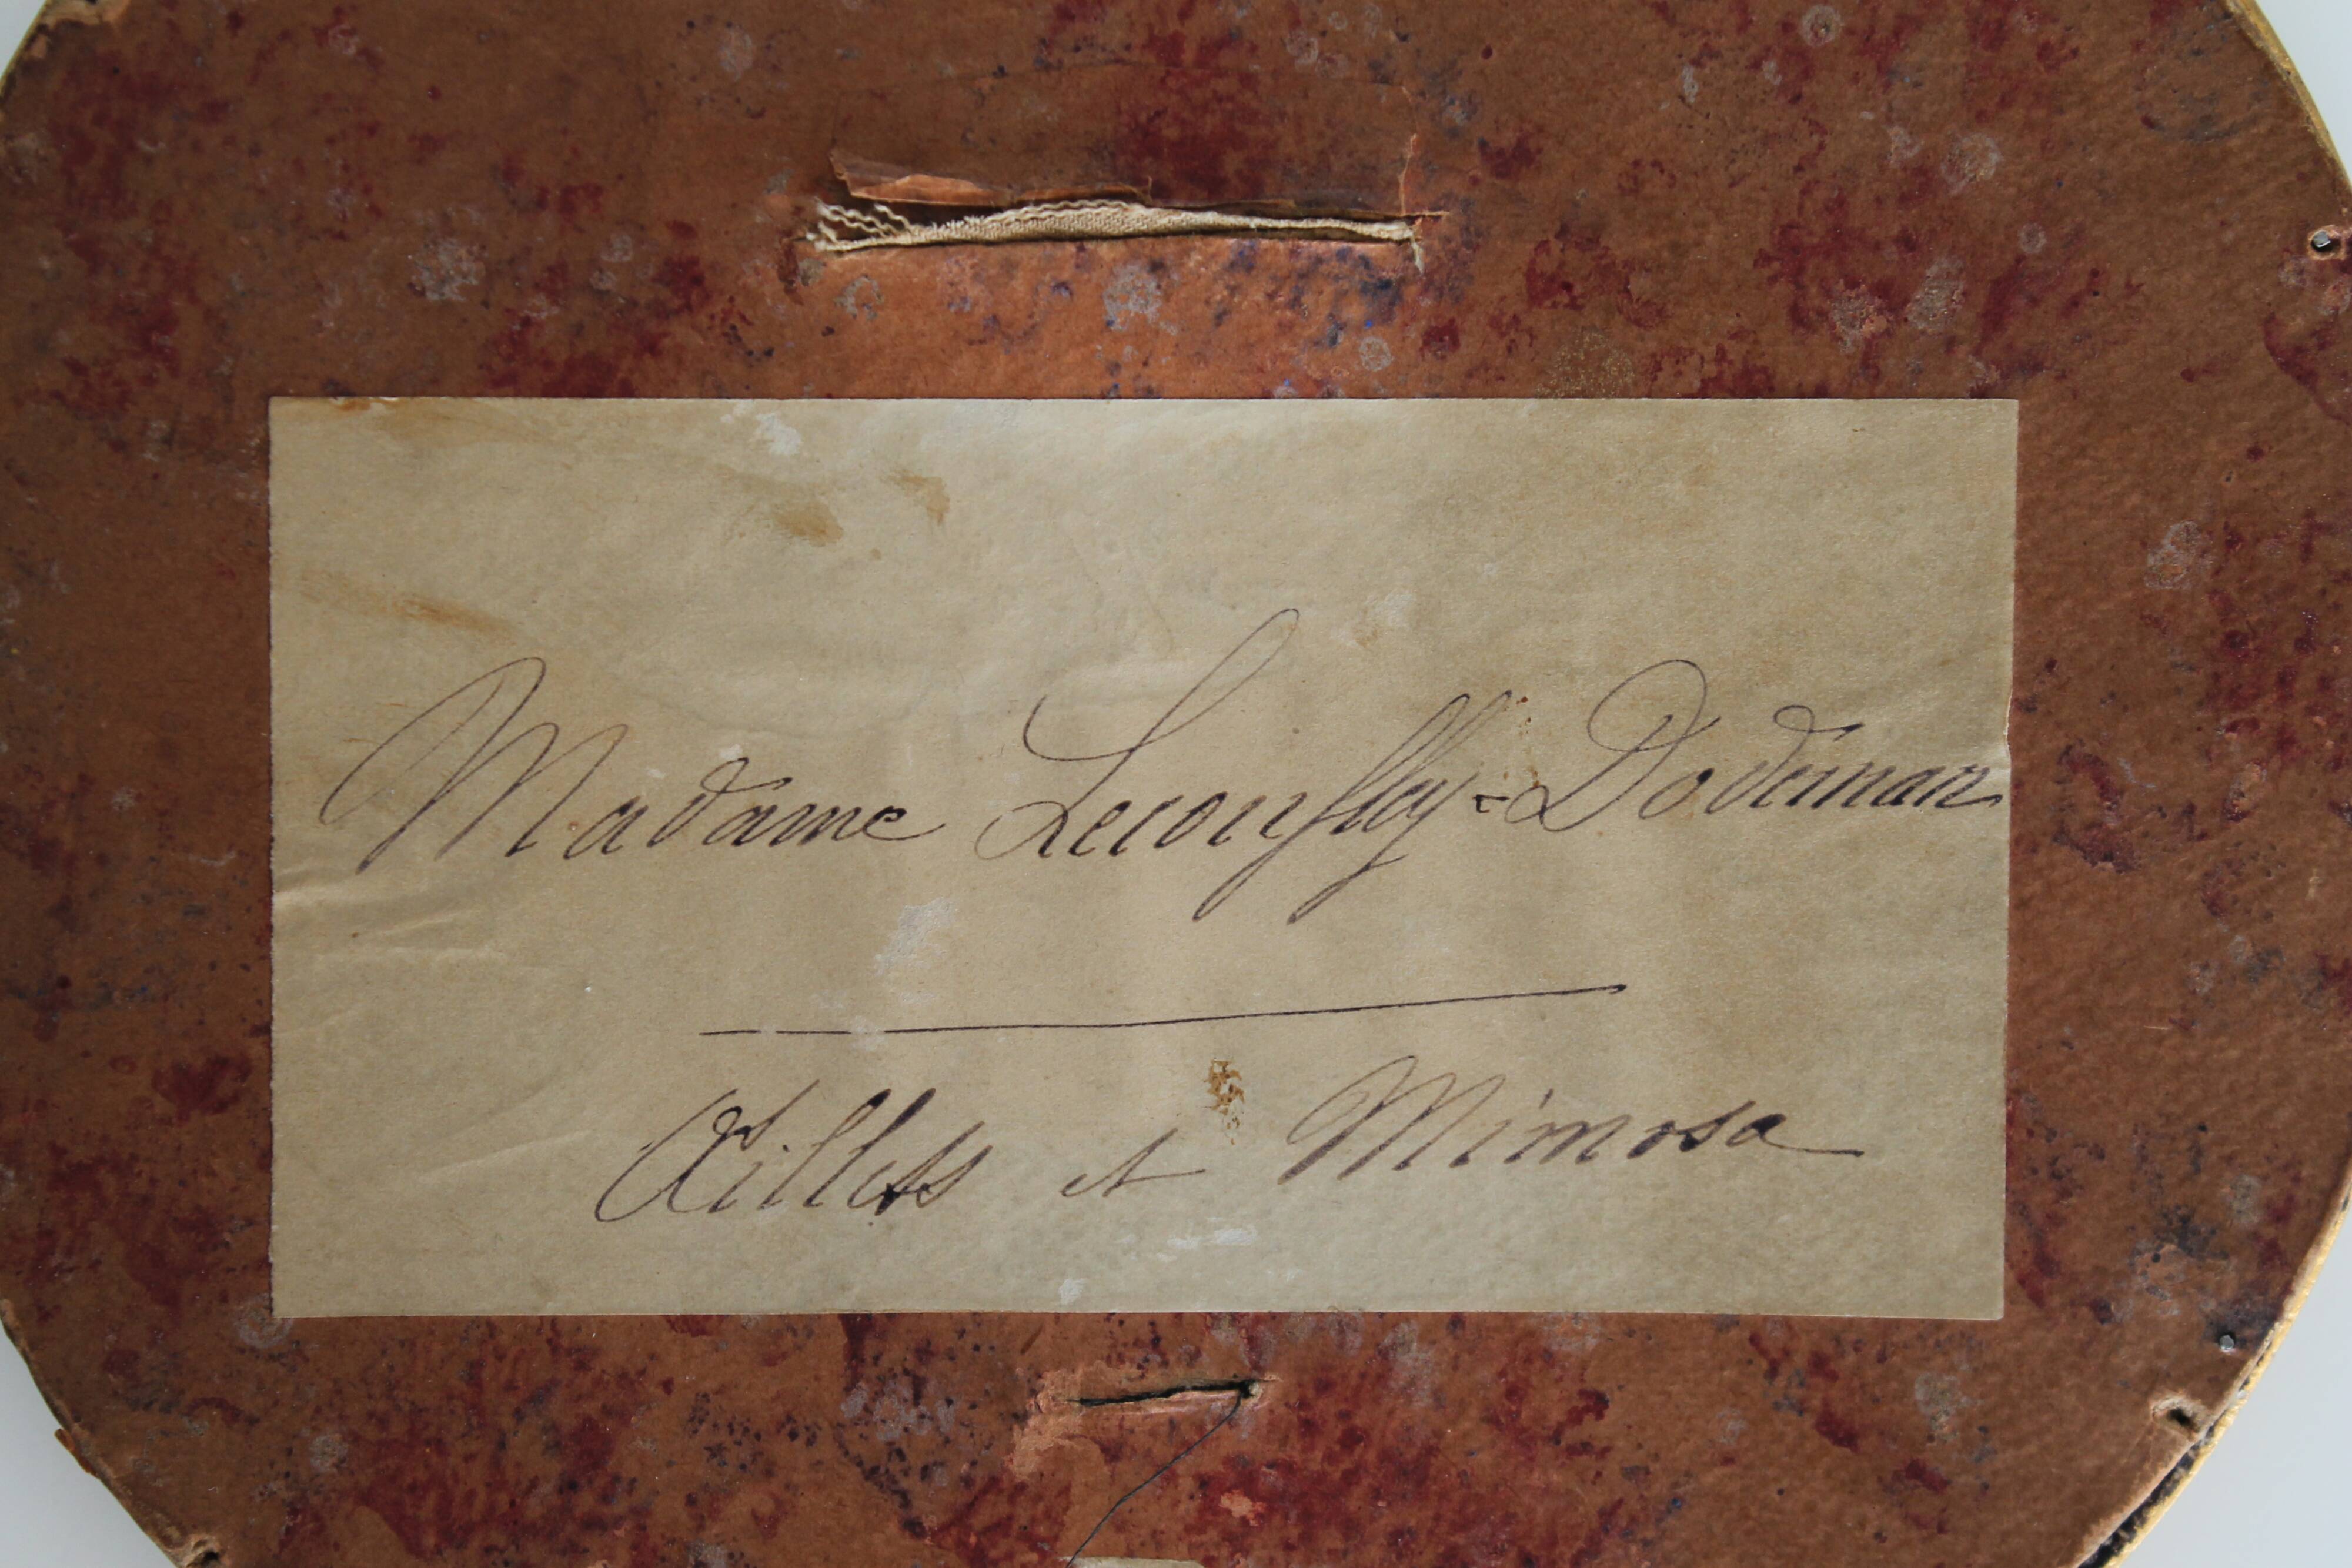 Madame Lecouffley-Dodeman
Œillets et Mimosa